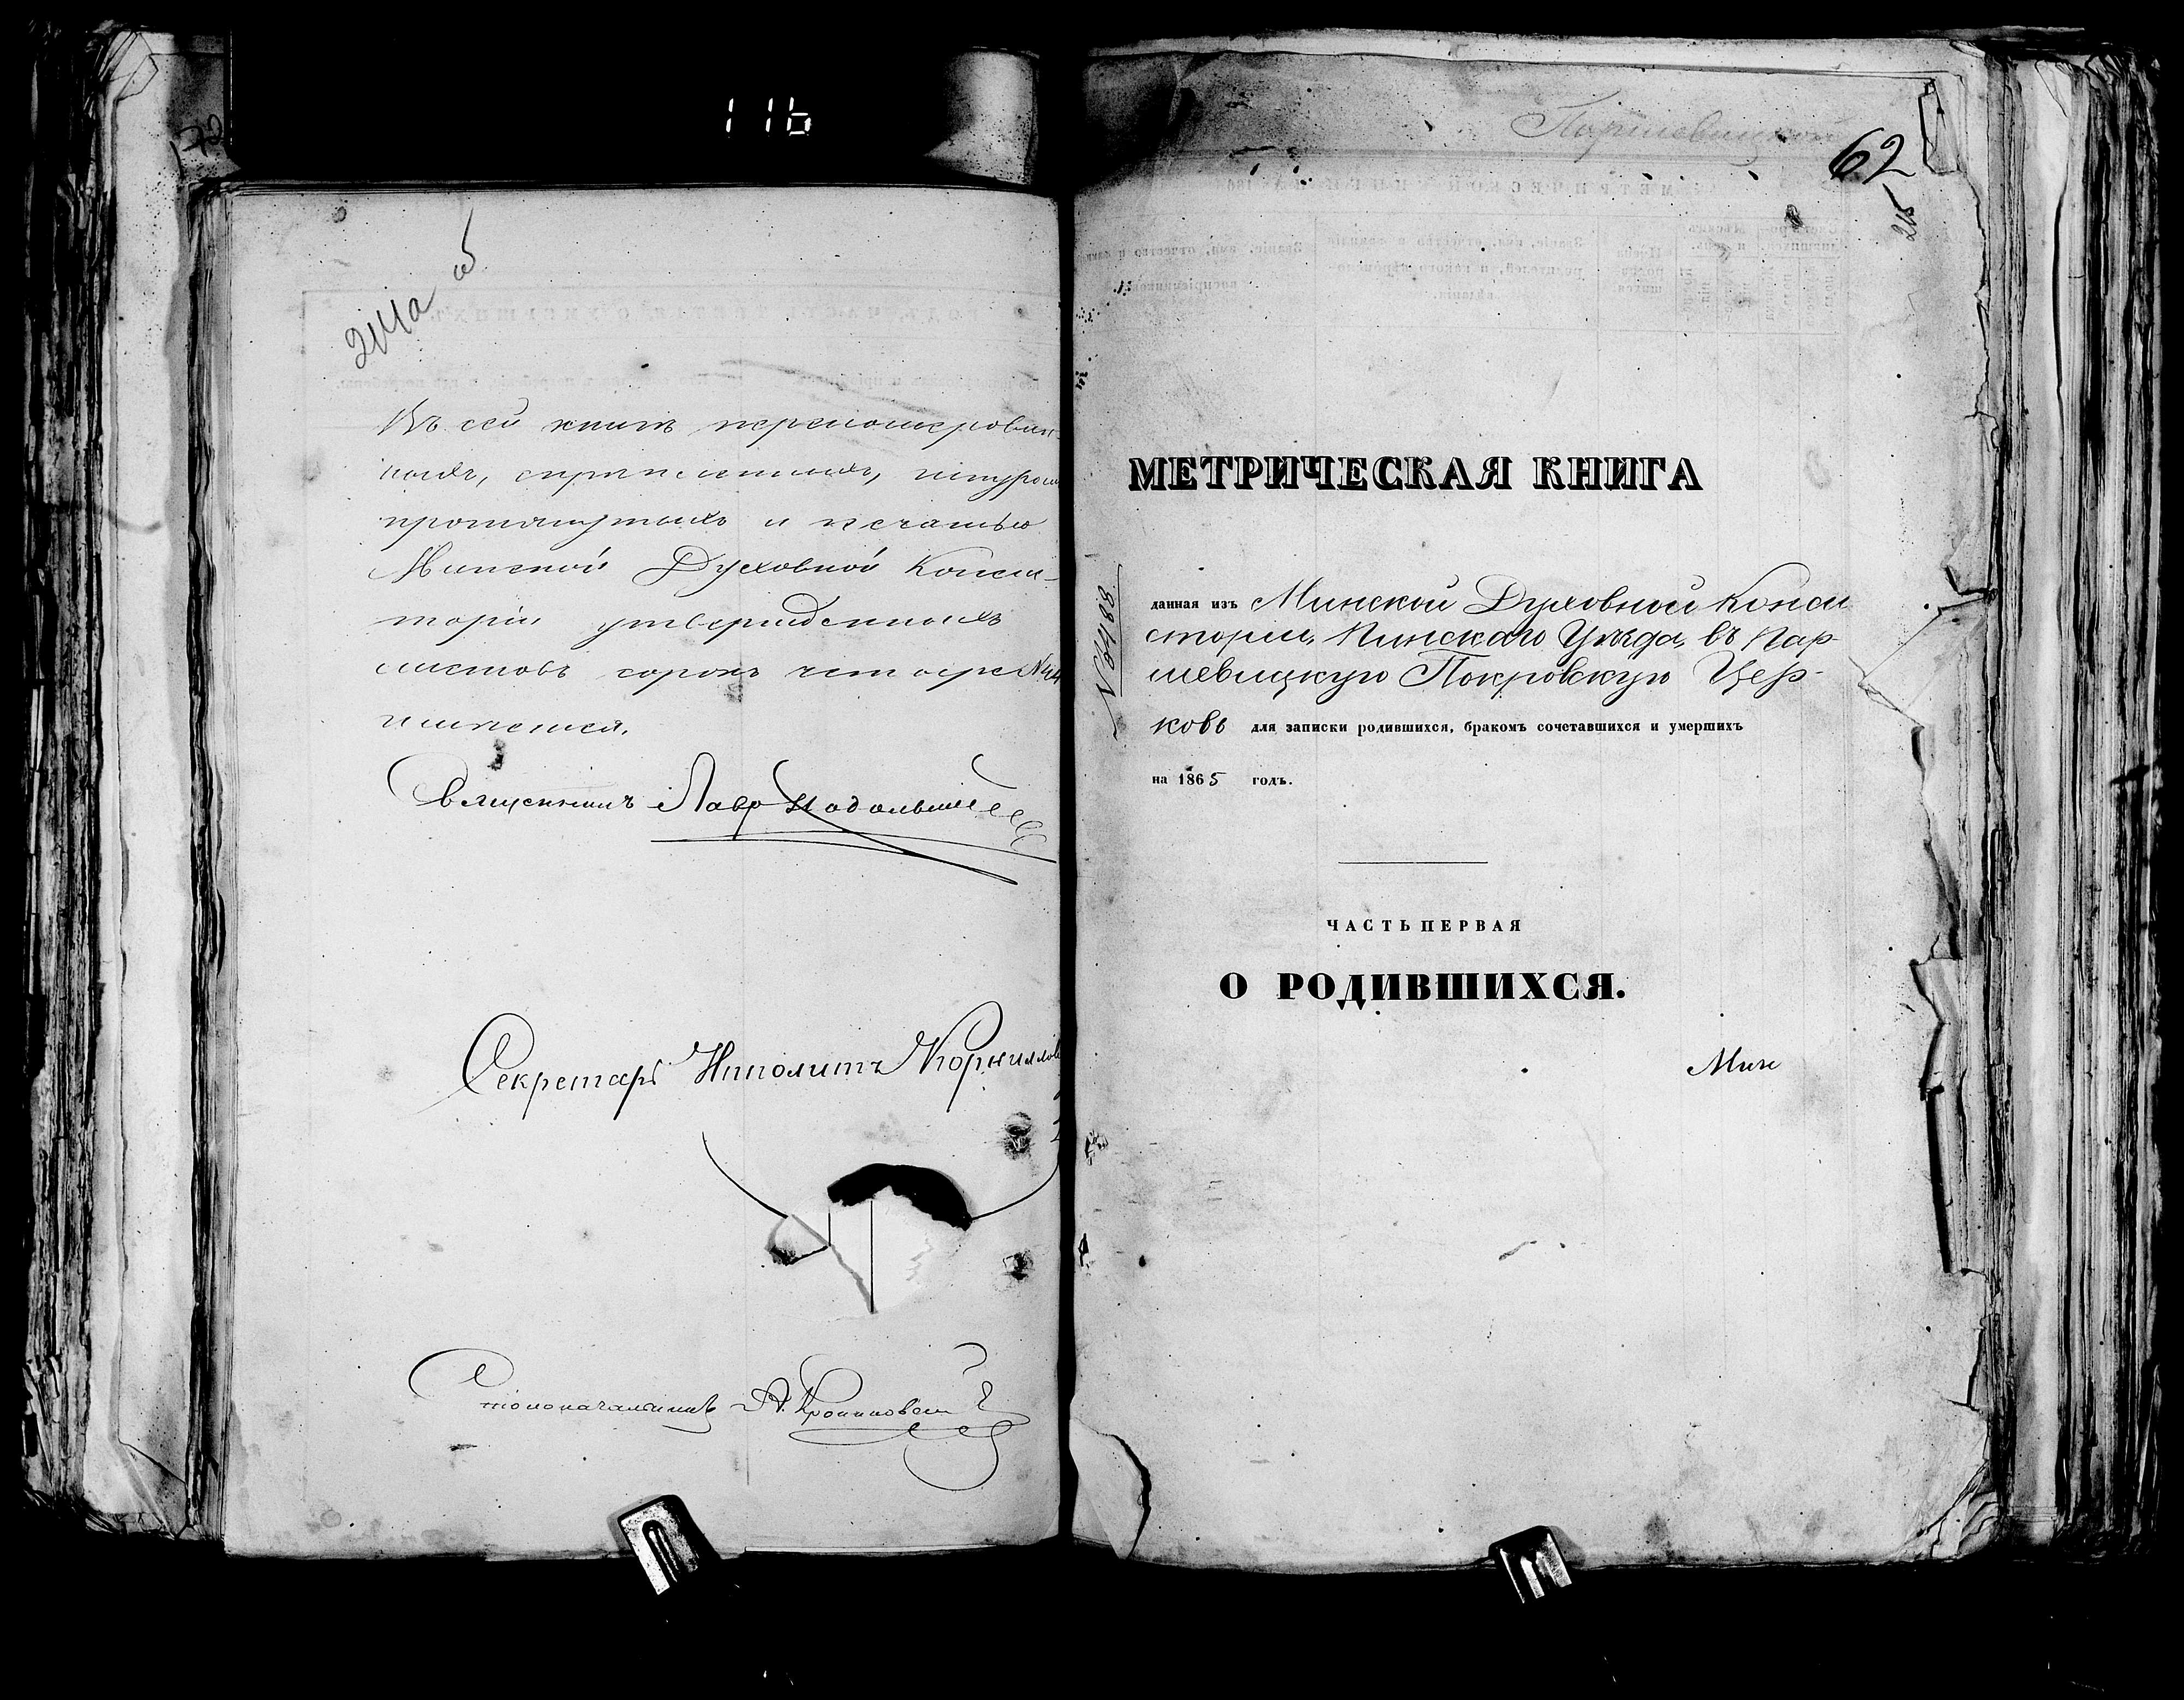 116
214а об
Въ сей книгѣ перенумерован-
ныхъ, скрѣпленныхъ, шнуром
протянутыхъ и печатью
Минской Духовной Конси-
торіи утвержденныхъ
листовъ сорокъ четыре №44
имѣется.
Священникъ Лавр
Секретарь Иполитъ Корнилов
Столоначальникъ А.
Паршевицкой
62
215
МЕТРИЧЕСКАЯ КНИГА
№ 8488
данная изъ Минской Духовной Конси
сторіи, Пинскаго Уѣзда, въ Пар-
шевицкую Покровскую Цер-
ковь для записки родившихся, бракомъ сочетавшихся и умершихъ
на 1865 годъ.
ЧАСТЬ ПЕРВАЯ
О РОДИВШИХСЯ.
Мин